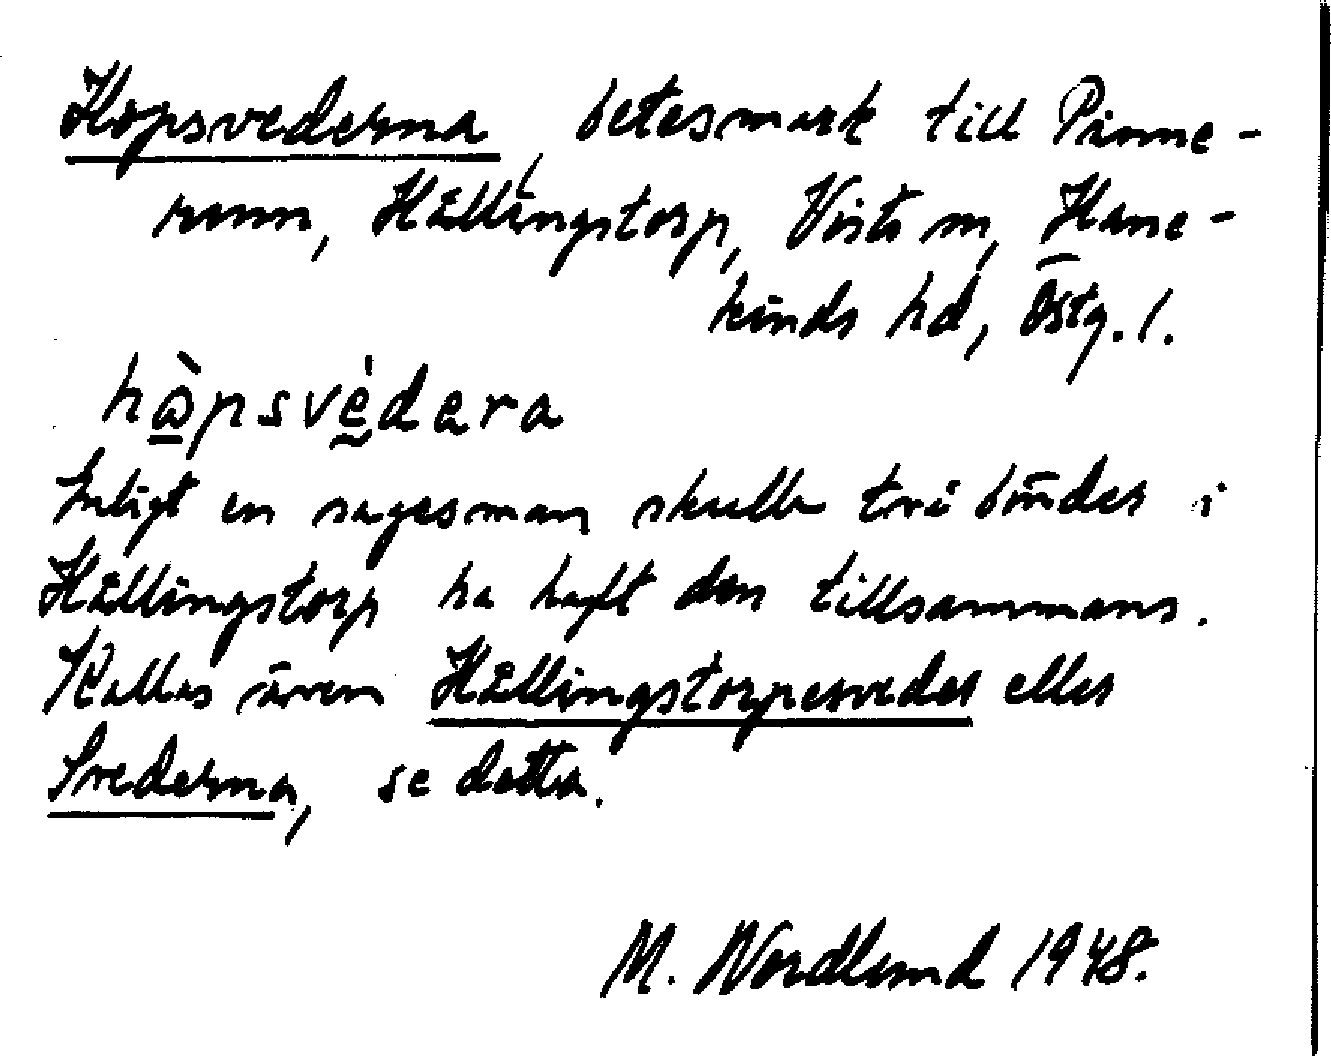 Hopsvederna, betesmark till Pänne-
runn, Hällingstorp, Vists sn, Hane-
kinds hd, Östg. l.
hòpsvèdera
Enligt en sagesman skulle två bönder i
Hällingstorp ha haft den tillsammans.
Kallas även Hällingstorpesveder eller
Svederna, se detta.
M. Nordlund 1948.